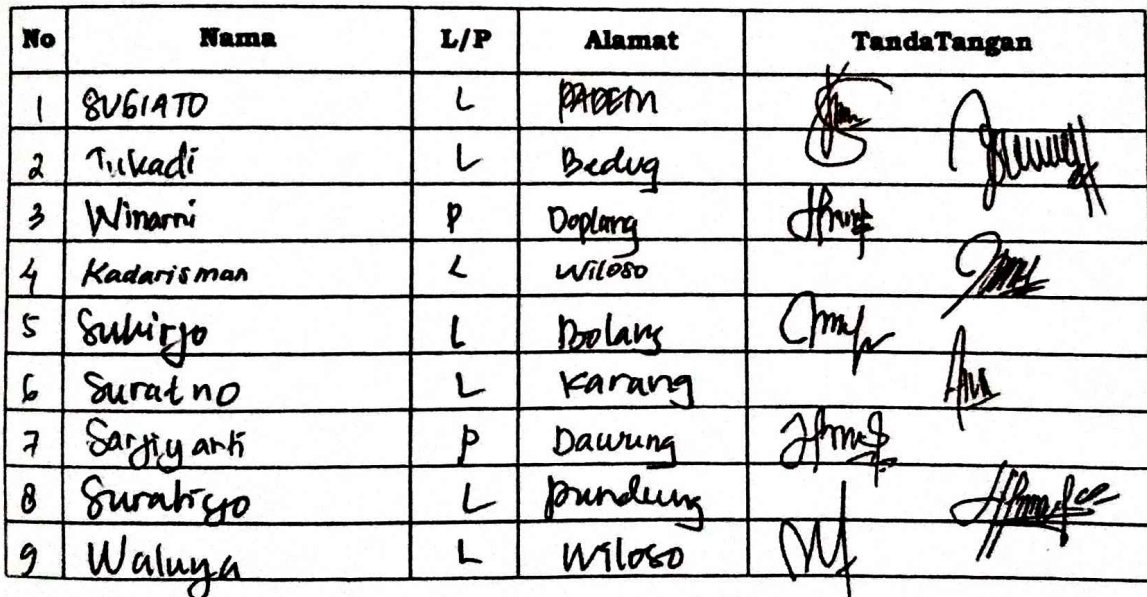 No Nama L/P Alamat TandaTangan
1 SUGIATO L PADEM
2 Tukadi L Bedug
3 Winarni P Doplang
4 Kadarisman L Wiloso
5 Sukirjo L Bolang
6 Suratno L Karang
7 Sarjiyanti P Dawung
8 L pundung
9 Waluya L Wiloso